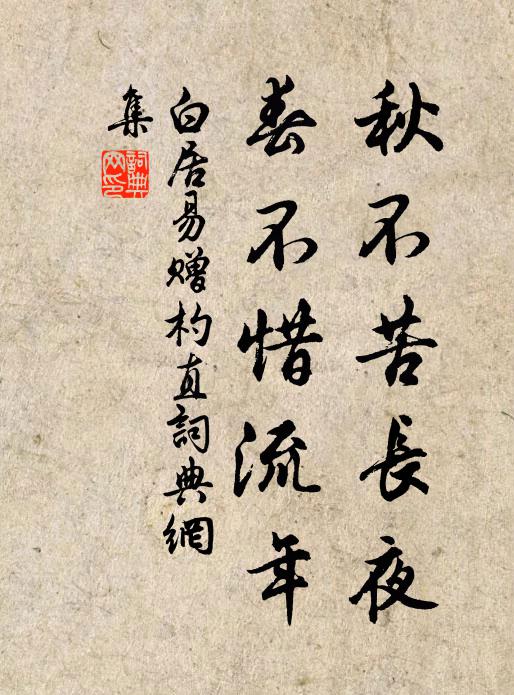 秋不苦長夜
春不惜流年
白居易贈杓直詞典網
集
詞典
网印